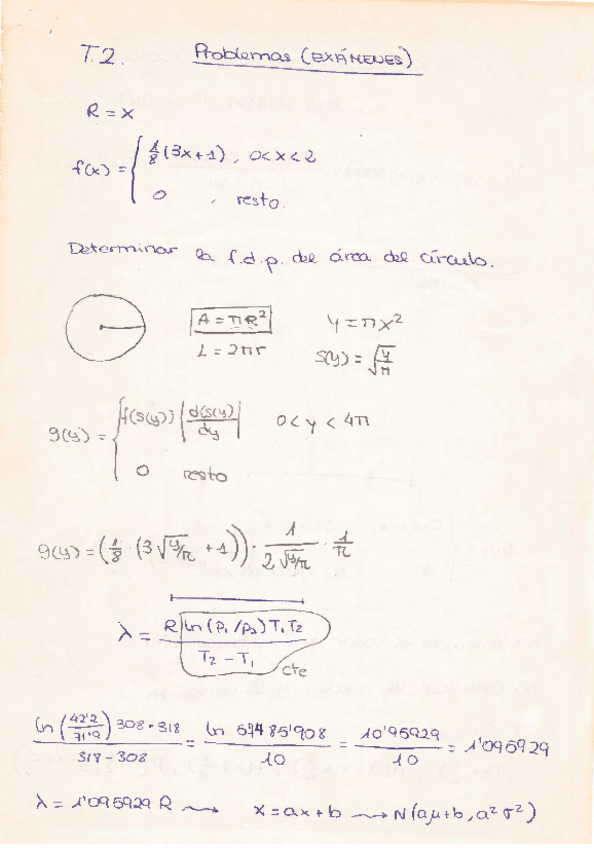 T.2. Problemas (EXÁMENES)
R = x
f(x) = { 1/8 (3x+1) , 0<x<2
0 , resto.
Determinar la f.d.p. del área del círculo.
A = πR² Y = πx²
L = 2πr S(y) = √(y/π)
g(y) = { f(S(y)) |d(S(y))/dy| 0 < y < 4π
0 resto
g(y) = (1/8 · (3√(y/π) + 1)) · 1/(2√(y/π)) · 1/π
λ = R ln(P₁/P₂) T₁T₂ / (T₂ - T₁) cte
ln(42'2/71'9) 308 · 318 / (318 - 308) = ln 57485'908 / 10 = 10'95929 / 10 = 1'095929
λ = 1'095929 R ⟿ x = ax + b ⟿ N(aμ+b, a²σ²)